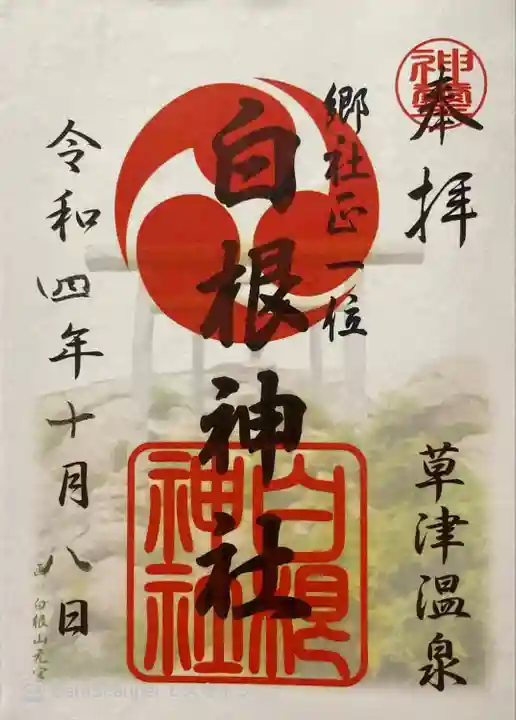 奉拝
神璽
草津温泉
郷社正一位
白根神社
白根神社
令和四年十月八日
画 白根山元宮